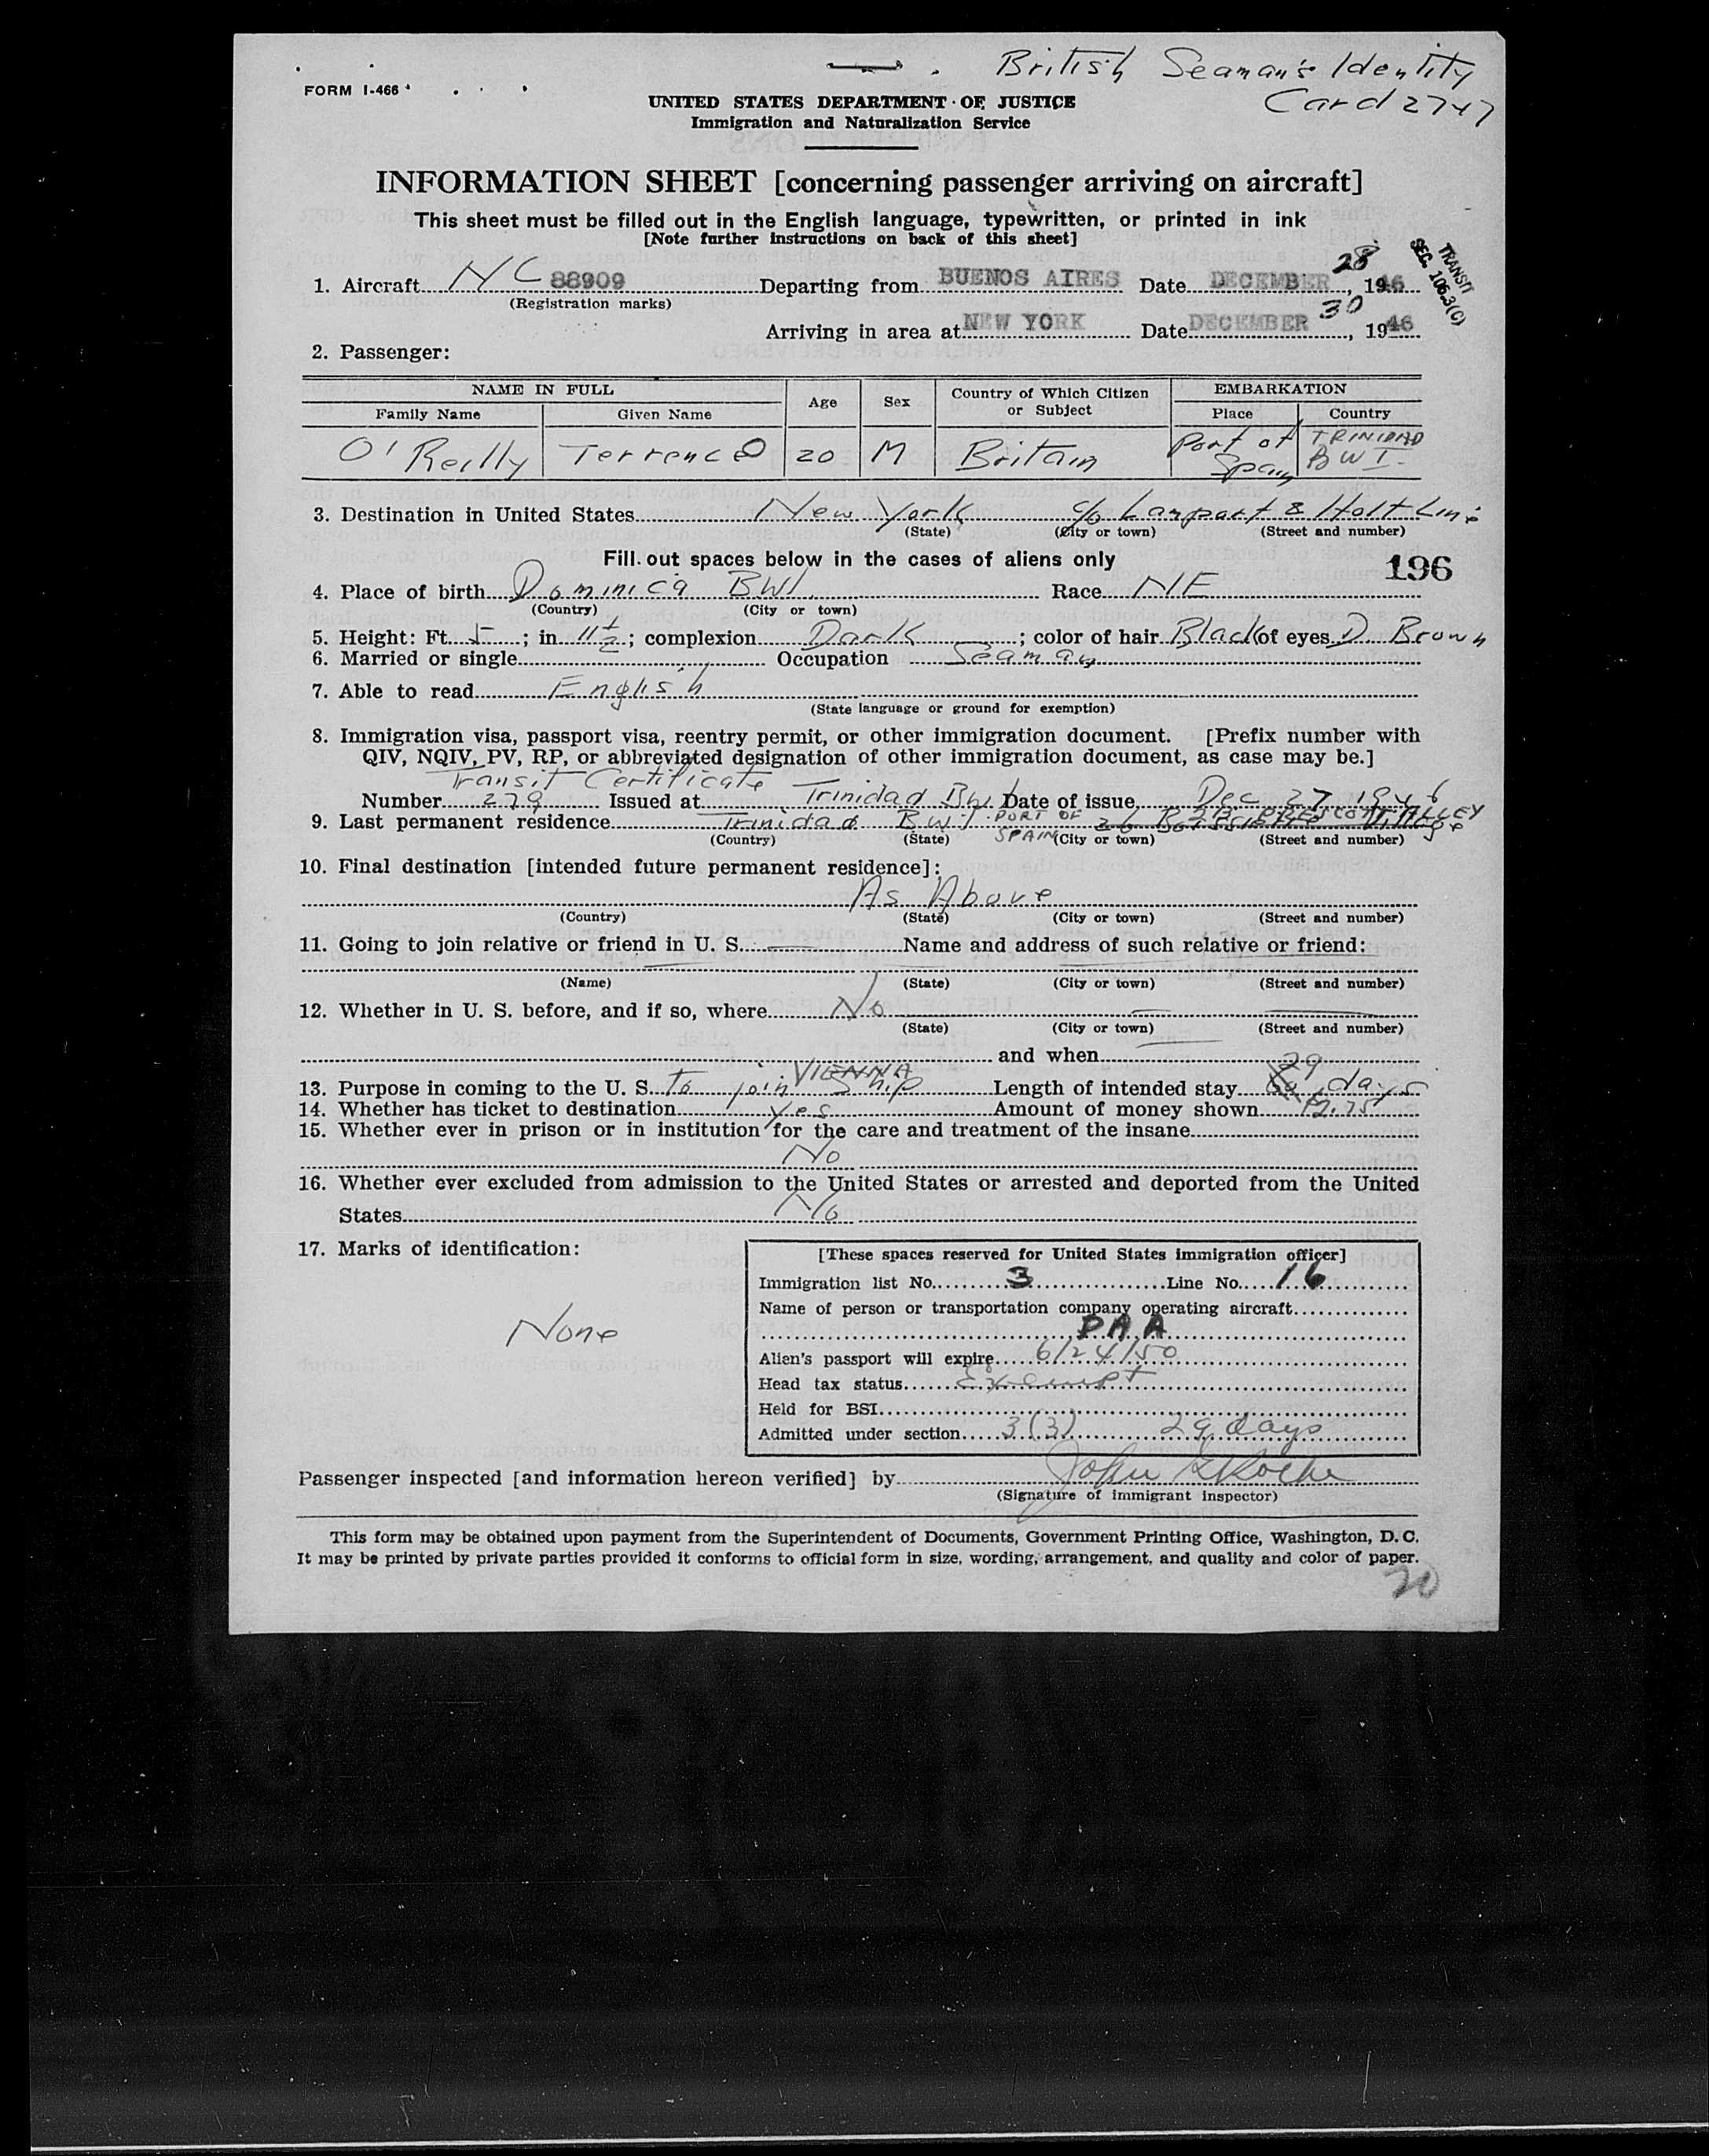 British Seaman's Identity
Card 2747
FORM I-466
UNITED STATES DEPARTMENT OF JUSTICE
Immigration and Naturalization Service
INFORMATION SHEET [concerning passenger arriving on aircraft]
This sheet must be filled out in the English language, typewritten, or printed in ink
[Note further instructions on back of this sheet]
TRANSIT
SEC. 106.3(C)
1. Aircraft NC 88909 Departing from BUENOS AIRES Date DECEMBER 28, 1946
(Registration marks)
Arriving in area at NEW YORK Date DECEMBER 30, 1946
2. Passenger:
NAME IN FULL Age Sex Country of Which Citizen or Subject EMBARKATION
Family Name Given Name Place Country
O'Reilly Terrence 20 M Britain Port of Spain TRINIDAD BWI
3. Destination in United States New York c/o Lamport & Holt Line
(State) (City or town) (Street and number)
Fill out spaces below in the cases of aliens only
196
4. Place of birth Dominica BWI Race NE
(Country) (City or town)
5. Height: Ft. 5; in 11 1/2; complexion Dark; color of hair Black of eyes D. Brown
6. Married or single Occupation Seaman
7. Able to read English
(State language or ground for exemption)
8. Immigration visa, passport visa, reentry permit, or other immigration document. [Prefix number with
QIV, NQIV, PV, RP, or abbreviated designation of other immigration document, as case may be.]
Transit Certificate
Number 279 Issued at Trinidad BWI Date of issue Dec 27 1946
9. Last permanent residence Trinidad BWI PORT OF SPAIN
(Country) (State) (City or town) (Street and number)
10. Final destination [intended future permanent residence]:
As Above
(Country) (State) (City or town) (Street and number)
11. Going to join relative or friend in U. S. Name and address of such relative or friend:
(Name) (State) (City or town) (Street and number)
12. Whether in U. S. before, and if so, where No
(State) (City or town) (Street and number)
and when
VIENNA 29
13. Purpose in coming to the U. S. To join Ship Length of intended stay days
14. Whether has ticket to destination Yes Amount of money shown 12.75
15. Whether ever in prison or in institution for the care and treatment of the insane
No
16. Whether ever excluded from admission to the United States or arrested and deported from the United
States No
17. Marks of identification:
None
[These spaces reserved for United States immigration officer]
Immigration list No. 3 Line No. 16
Name of person or transportation company operating aircraft
PAA
Alien's passport will expire 6/24/50
Head tax status Exempt
Held for BSI
Admitted under section 3(3) 29 days
Passenger inspected [and information hereon verified] by John
(Signature of immigrant inspector)
This form may be obtained upon payment from the Superintendent of Documents, Government Printing Office, Washington, D. C.
It may be printed by private parties provided it conforms to official form in size, wording, arrangement, and quality and color of paper.
20